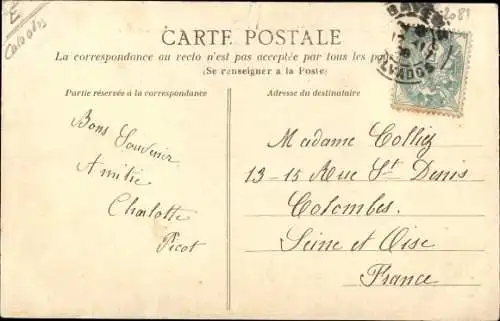 E
Calvados
2081
BAYEUX
CALVADOS
CARTE POSTALE
La correspondance au recto n'est pas acceptée par tous les pays
(Se renseigner a la Poste)
Partie réservée à la correspondance
Adresse du destinataire
Bons Souvenir
Amitié
Charlotte
Picot
Madame Colliez
13-15 Rue St Denis
Colombes.
Seine et Oise
France